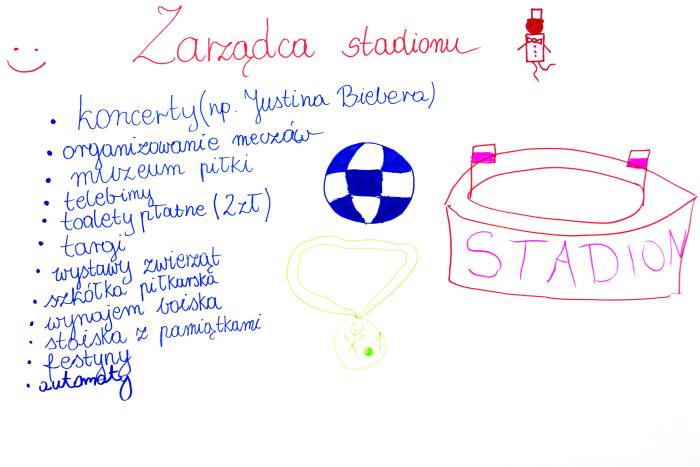 Zarządca stadionu
• koncerty (np. Justina Biebera)
• organizowanie meczów
• muzeum piłki
• telebimy
• toalety płatne (2zł)
• targi
• wystawy zwierząt
• szkółka piłkarska
• wynajem boiska
• stoiska z pamiątkami
• festyny
• automaty
STADION
1